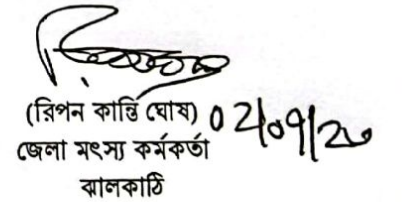 (রিপন কান্তি ঘোষ)
জেলা মৎস্য কর্মকর্তা
ঝালকাঠি